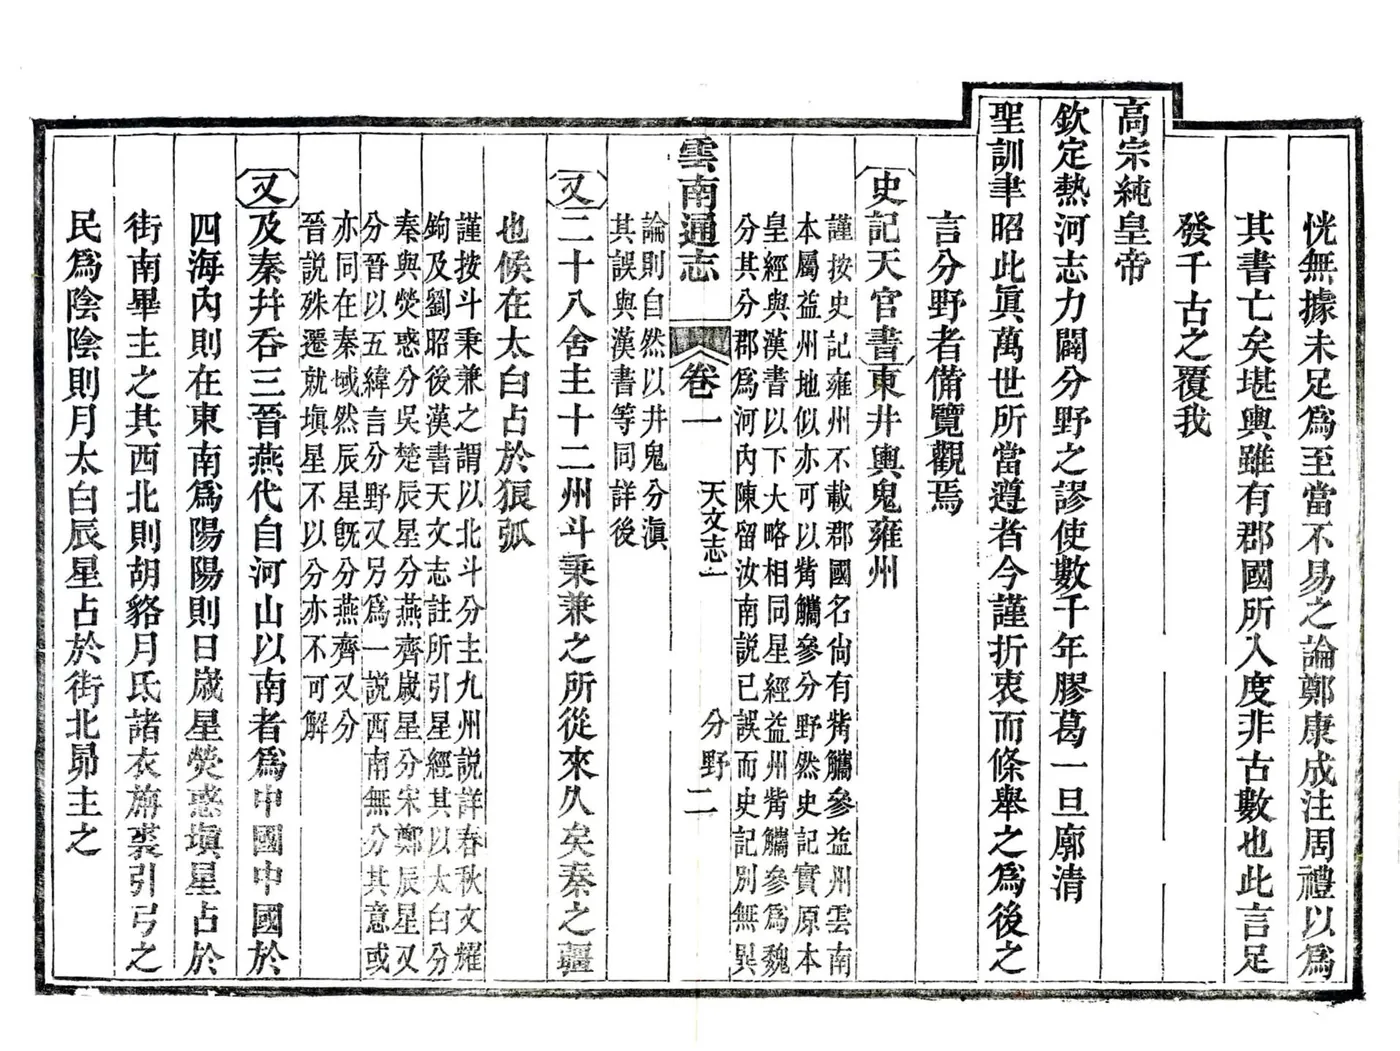 恍無據未足爲至當不易之論鄭康成注周禮以爲
其書亡矣堪輿雖有郡國所入度非古數也此言足
發千古之覆我
高宗純皇帝
欽定熱河志力闢分野之謬使數千年膠葛一旦廓清
聖訓聿昭此眞萬世所當遵者今謹折衷而條舉之爲後之
言分野者備覽觀焉
史記天官書東井輿鬼雍州
謹按史記雍州不載郡國名尙有觜觿參益州雲南
本屬益州地似亦可以觜觿參分野然史記實原本
皇經與漢書以下大略相同星經益州觜觿參爲魏
分其分郡爲河內陳留汝南説已誤而史記別無異
論則自然以井鬼分滇
其誤與漢書等同詳後
雲南通志
卷一
天文志一
分野
二
又二十八舍主十二州斗秉兼之所從來久矣秦之疆
也候在太白占於狼弧
謹按斗秉兼之謂以北斗分主九州説詳春秋文耀
鉤及劉昭後漢書天文志註所引星經其以太白分
秦與熒惑分吳楚辰星分燕齊歲星分宋鄭辰星又
分晉以五緯言分野又另爲一説西南無分其意或
亦同在秦域然辰星旣分燕齊又分
晉説殊遷就塡星不以分亦不可解
又及秦幷吞三晉燕代自河山以南者爲中國中國於
四海內則在東南爲陽陽則日歲星熒惑塡星占於
街南畢主之其西北則胡貉月氐諸衣旃裘引弓之
民爲陰陰則月太白辰星占於街北昴主之